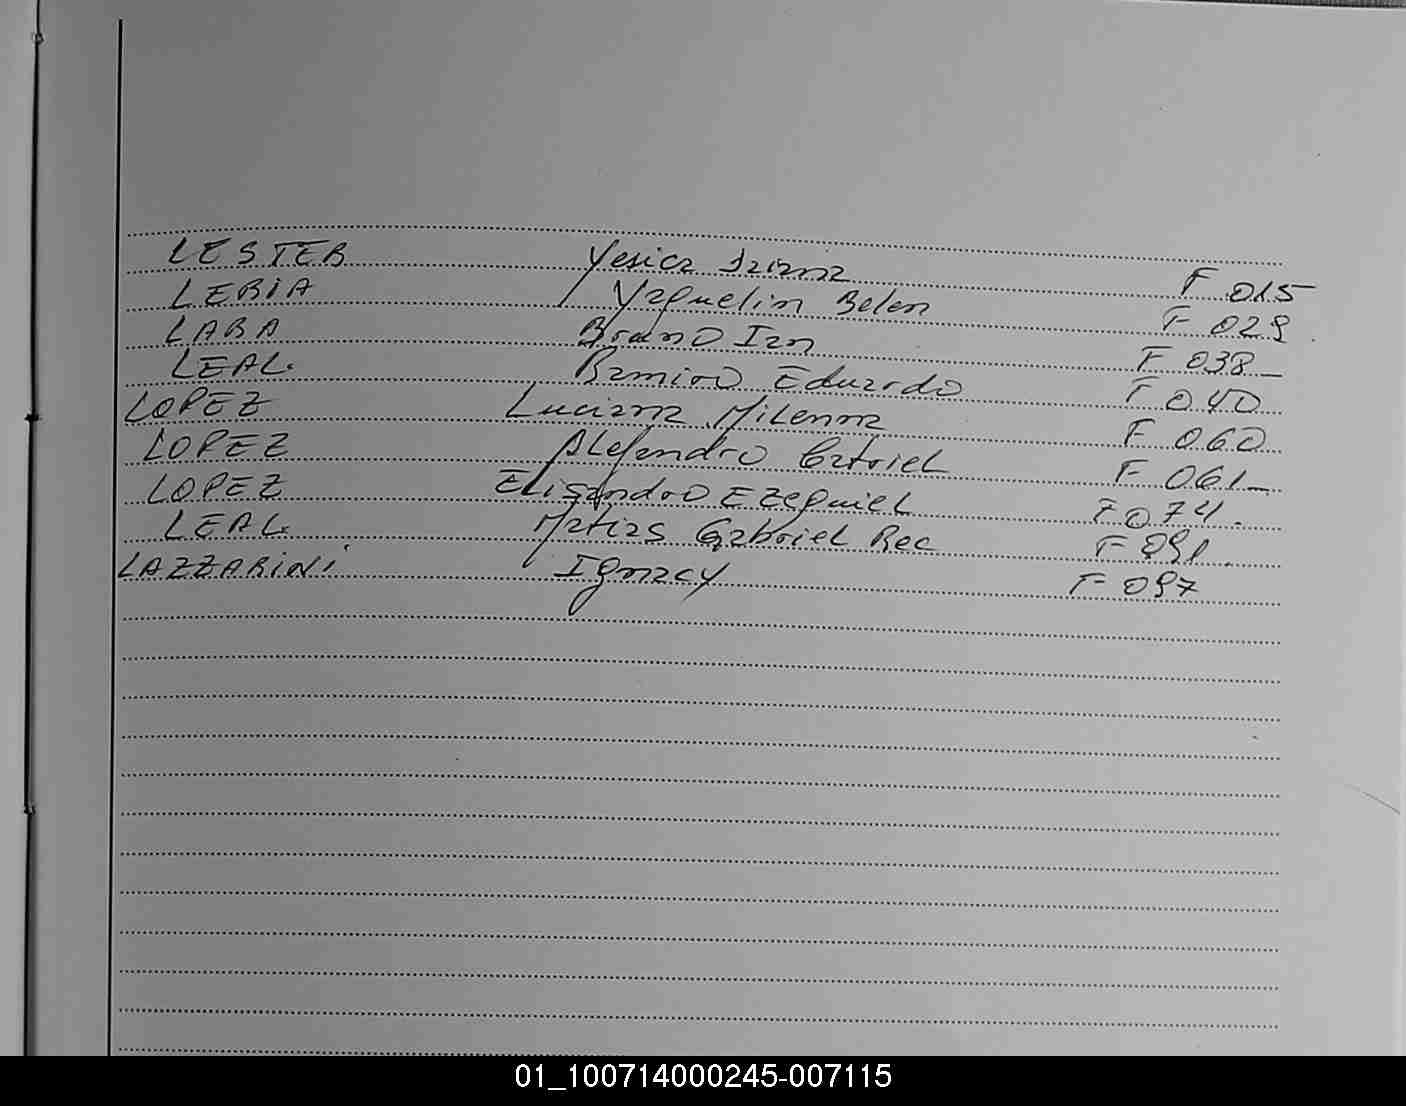 LESTER Yesica Iriana F 015
LERIA Yaquelin Belen F 029
LARA Bruno Ian F 038
LEAL Ramiro Eduardo F 040
LOPEZ Luciana Milenna F 060
LOPEZ Alejandro Gabriel F 061
LOPEZ Elisandro EZequiel F 074.
LEAL Matias Gabriel Rec F 091.
LAZZARINI Ignacy F 097
01_100714000245-007115